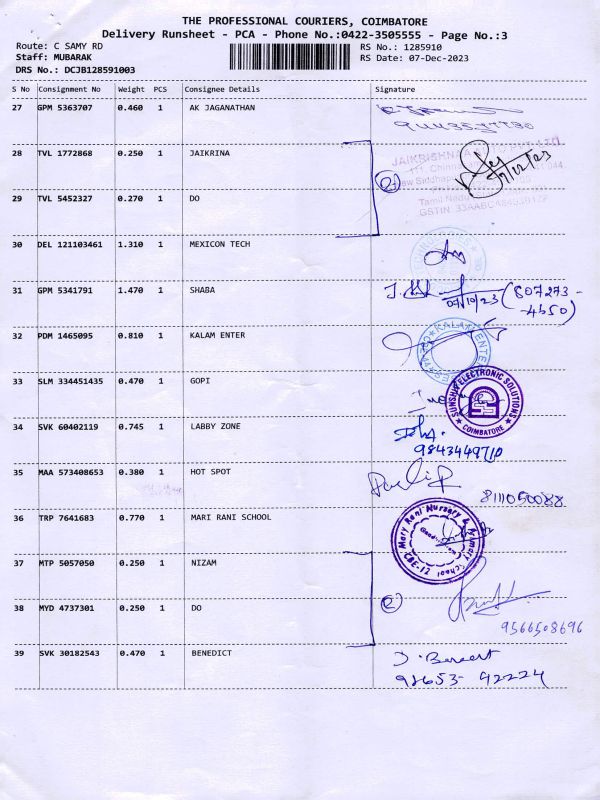 THE PROFESSIONAL COURIERS, COIMBATORE
Delivery Runsheet - PCA - Phone No.:0422-3505555 - Page No.:3
Route: C SAMY RD
RS No.: 1285910
Staff: MUBARAK
RS Date: 07-Dec-2023
DRS No.: DCJB128591003
S No Consignment No Weight PCS Consignee Details Signature
27 GPM 5363707 0.460 1 AK JAGANATHAN
28 TVL 1772868 0.250 1 JAIKRINA
29 TVL 5452327 0.270 1 DO
30 DEL 121103461 1.310 1 MEXICON TECH
31 GPM 5341791 1.470 1 SHABA
(807273-
-4650)
32 PDM 1465095 0.810 1 KALAM ENTER
33 SLM 334451435 0.470 1 GOPI
SUNSHI ELECTRONIC SOLUTIONS
COIMBATORE
34 SVK 60402119 0.745 1 LABBY ZONE
9843449710
35 MAA 573408653 0.380 1 HOT SPOT
8111050088
36 TRP 7641683 0.770 1 MARI RANI SCHOOL
Mary Rani Nursery & Primary School
CBE-12
37 MTP 5057050 0.250 1 NIZAM
38 MYD 4737301 0.250 1 DO
9566508696
39 SVK 30182543 0.470 1 BENEDICT
98653-42224